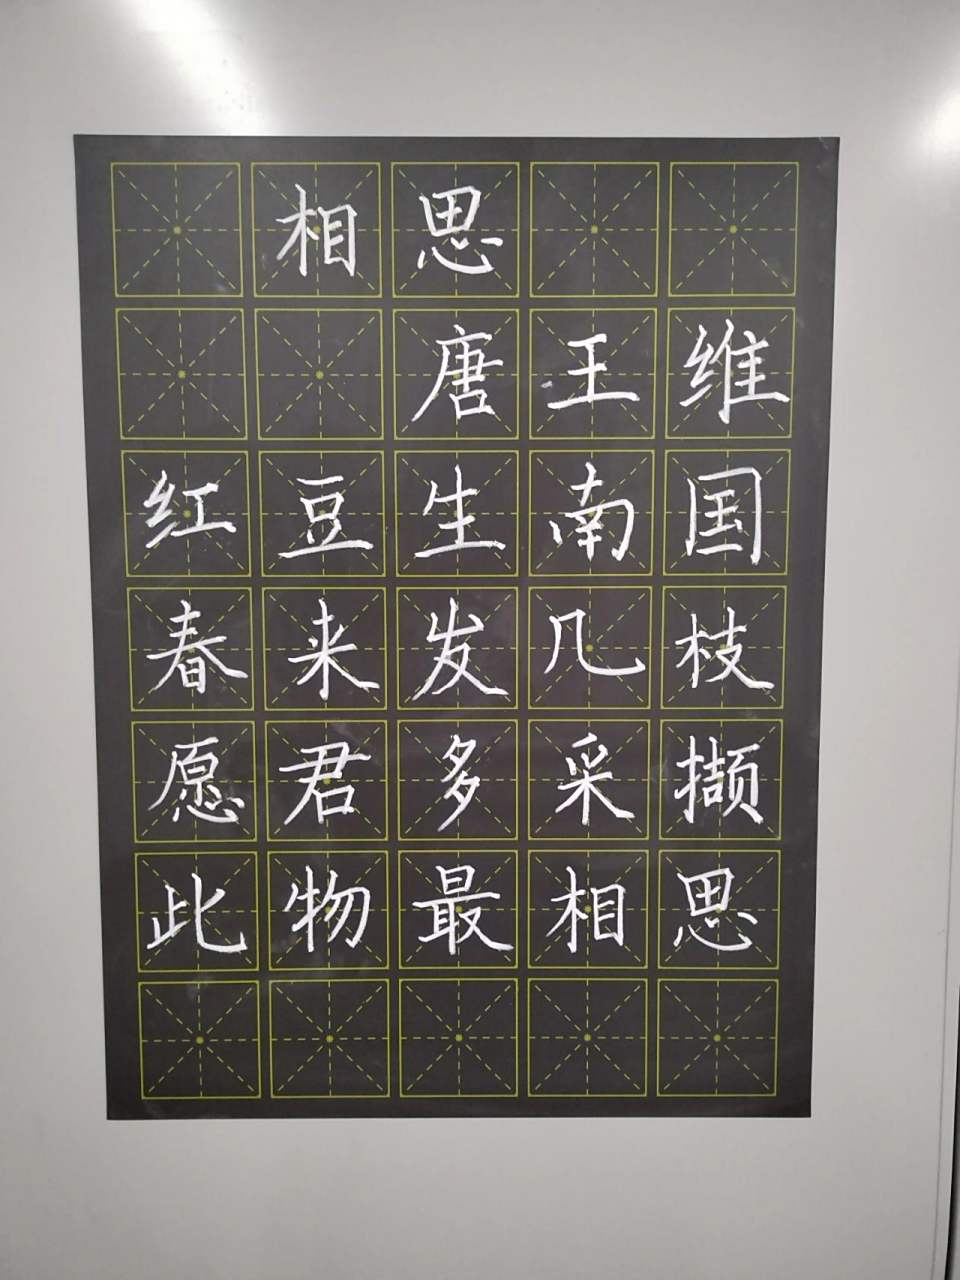 相思
唐王维
红豆生南国
春来发几枝
愿君多采撷
此物最相思